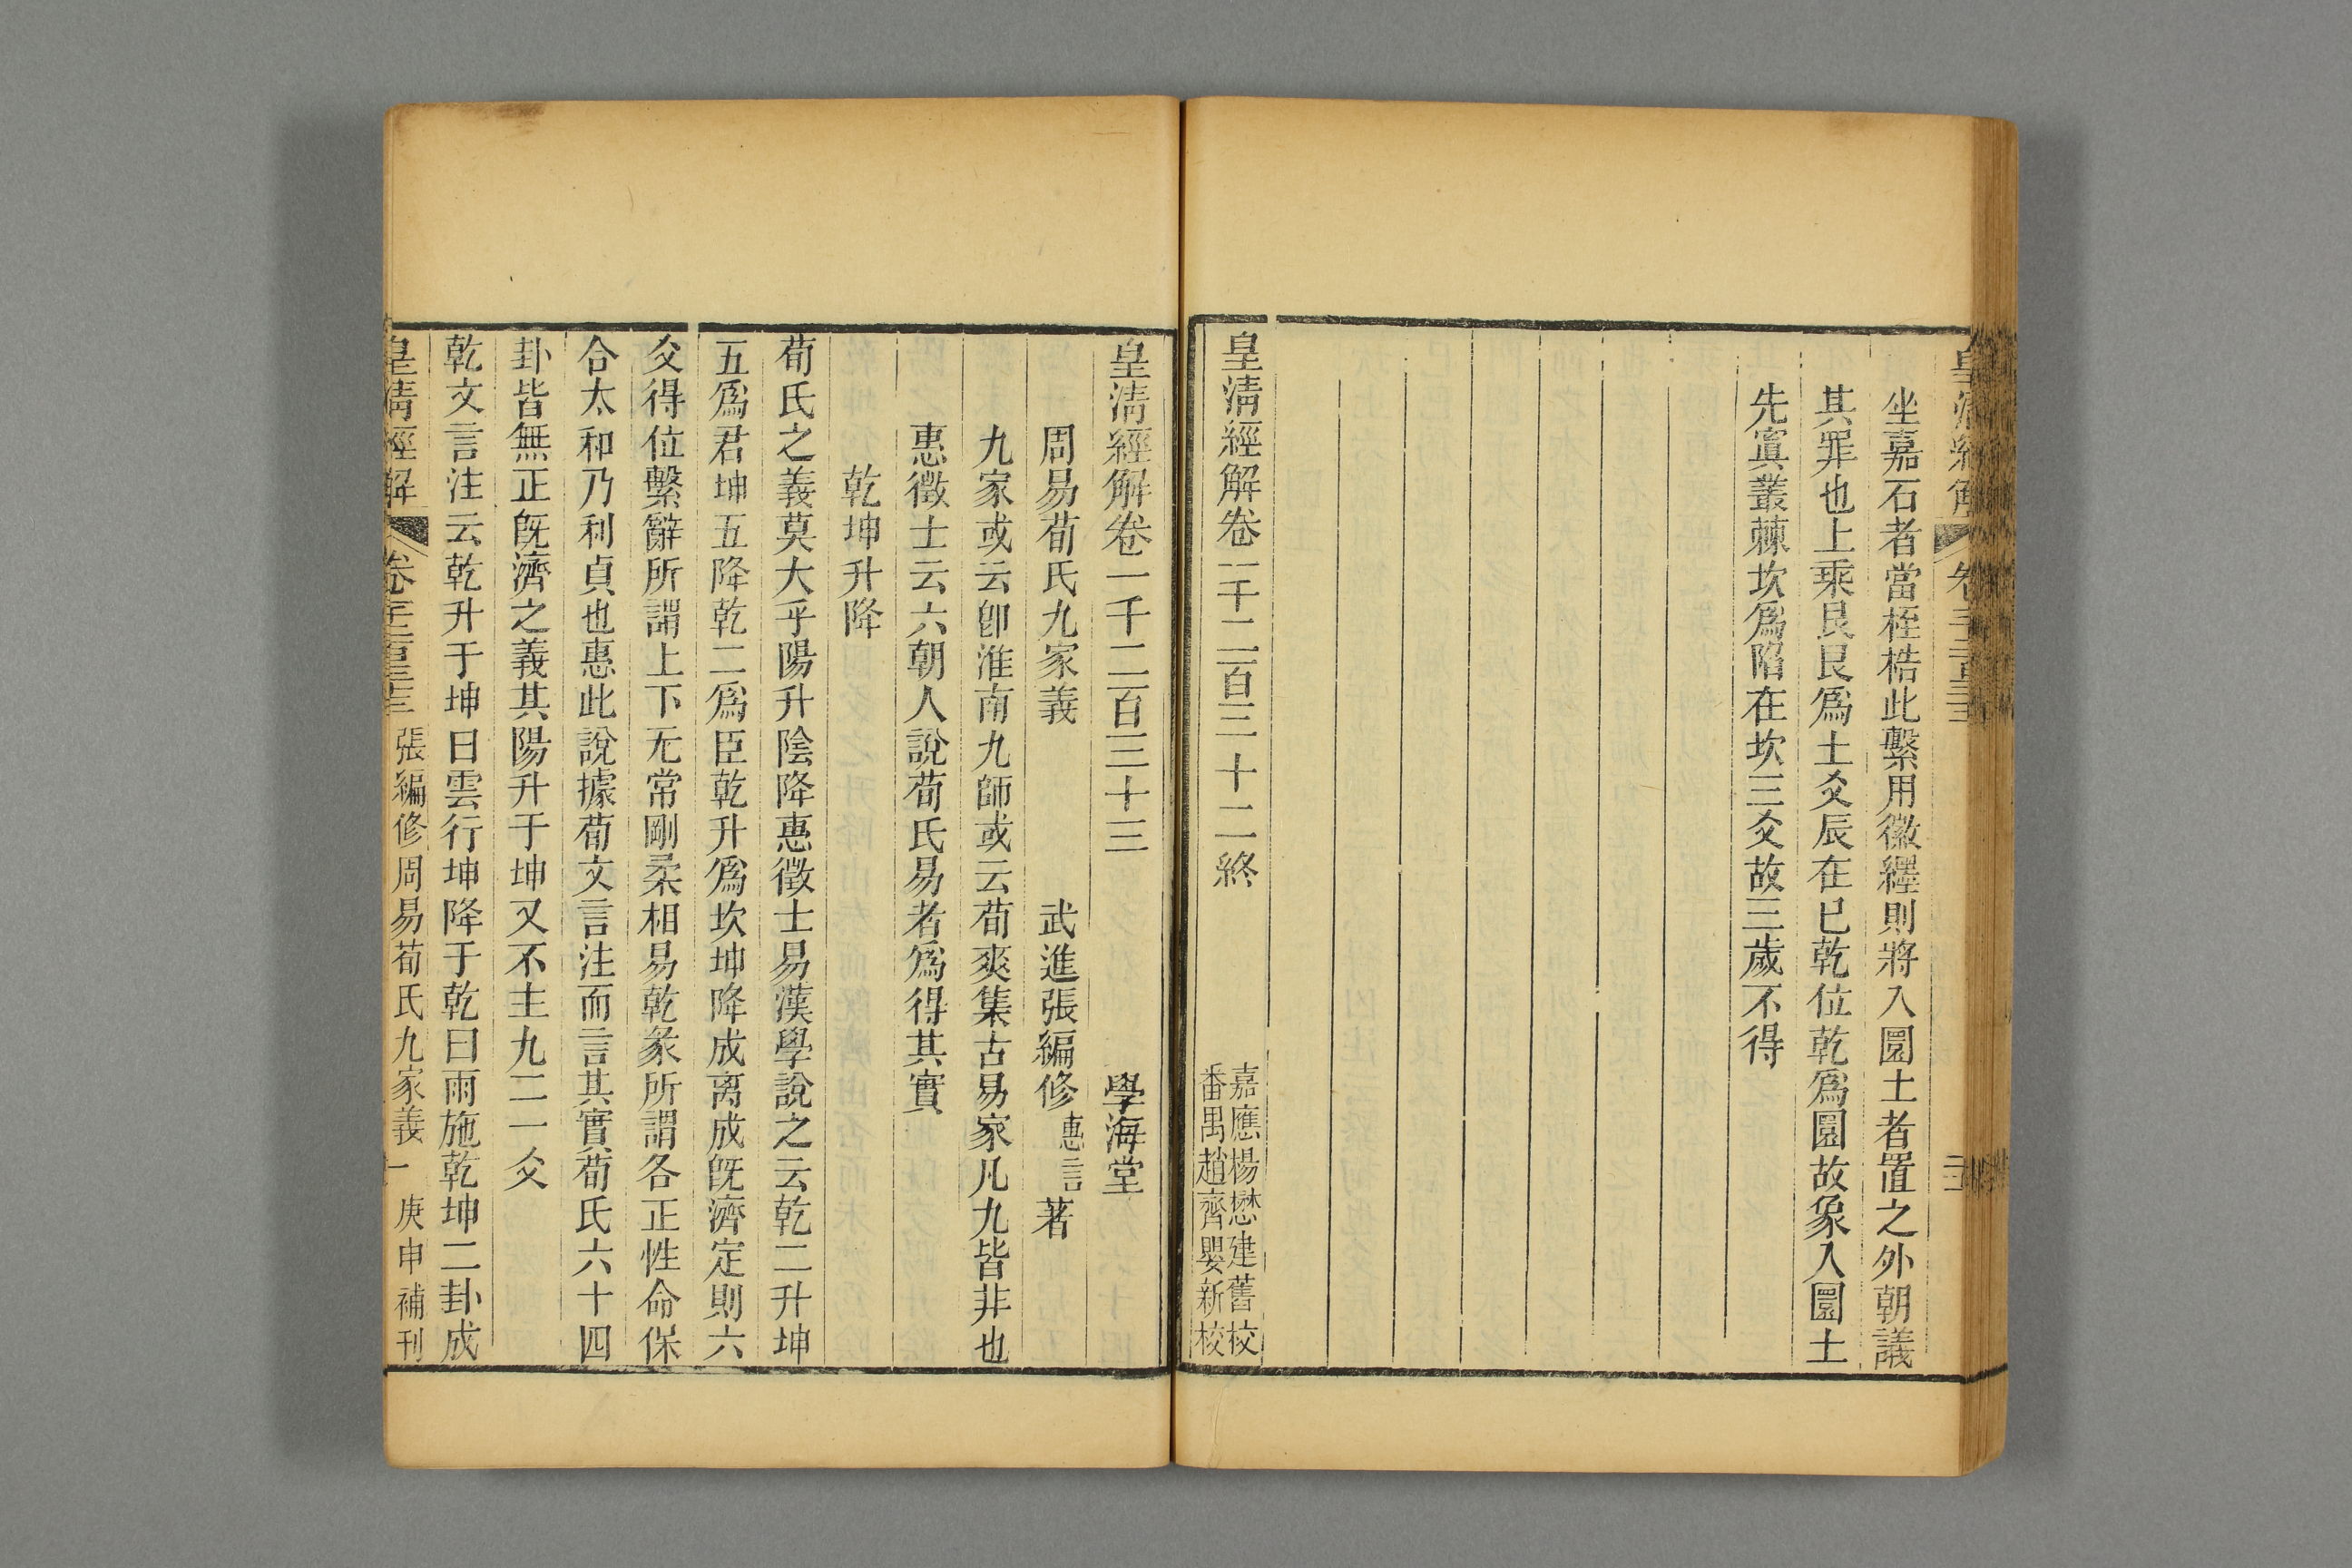 坐嘉石者當桎梏此繫用徽纆則將入圜土者置之外朝議
其罪也上乘艮艮爲土爻辰在巳乾位乾爲圜故象入圜土
先寘叢棘坎爲陷在坎三爻故三歲不得
皇淸經解卷一千二百三十二終
嘉應楊懋建舊校
番禺趙齊嬰新校
皇淸經解卷一千二百三十三
學海堂
周易荀氏九家義
武進張編修惠言著
九家或云卽淮南九師或云荀爽集古易家凡九皆非也
惠徵士云六朝人說荀氏易者爲得其實
乾坤升降
荀氏之義莫大乎陽升陰降惠徵士易漢學說之云乾二升坤
五爲君坤五降乾二爲臣乾升爲坎坤降成离成旣濟定則六
爻得位繫辭所謂上下无常剛柔相易乾彖所謂各正性命保
合太和乃利貞也惠此說據荀文言注而言其實荀氏六十四
卦皆無正旣濟之義其陽升于坤又不主九二一爻
乾文言注云乾升于坤曰雲行坤降于乾曰雨施乾坤二卦成
皇淸經解
張編修周易荀氏九家義
一
庚申補刊